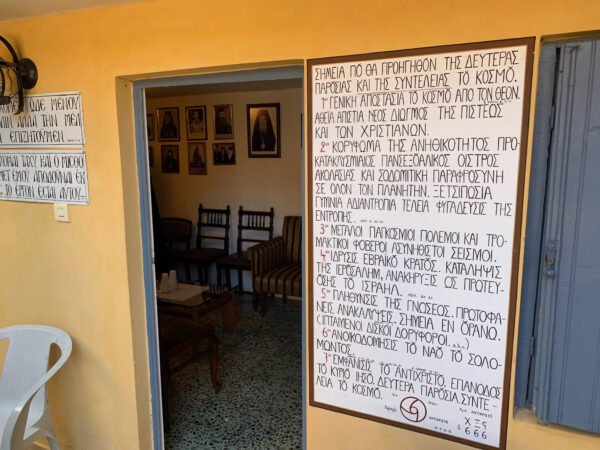 ΟΔΕ ΜΕΝΟΥ
ΑΛΛΑ ΤΗΝ ΜΕΛ
ΕΠΙΖΗΤΟΥΜΕΝ..
ΤΑΧΥ ΚΑΙ Ο ΜΙΣΘΟ
ΜΕΤ ΕΜΟΥ ΑΠΟΔΟΥΝΑΙ ΕΚ
ΤΟ ΕΡΓΟΝ ΕΣΤΑΙ ΑΥΤΟΥ...
ΣΗΜΕΙΑ ΠΟ ΘΑ ΠΡΟΗΓΗΘΟΝ ΤΗΣ ΔΕΥΤΕΡΑΣ
ΠΑΡΟΣΙΑΣ ΚΑΙ ΤΗΣ ΣΥΝΤΕΛΕΙΑΣ ΤΟ ΚΟΣΜΟ.
1ον ΓΕΝΙΚΗ ΑΠΟΣΤΑΣΙΑ ΤΟ ΚΟΣΜΟ ΑΠΟ ΤΟΝ ΘΕΟΝ.
ΑΘΕΙΑ ΑΠΙΣΤΙΑ ΝΕΟΣ ΔΙΩΓΜΟΣ ΤΗΣ ΠΙΣΤΕΩΣ
ΚΑΙ ΤΩΝ ΧΡΙΣΤΙΑΝΩΝ.
2ον ΚΟΡΥΦΩΜΑ ΤΗΣ ΑΝΗΘΙΚΟΤΗΤΟΣ ΠΡΟ-
ΚΑΤΑΚΛΥΣΜΙΑΙΟΣ ΠΑΝΣΕΞΟΑΛΙΚΟΣ ΟΙΣΤΡΟΣ
ΑΚΟΛΑΣΙΑΣ ΚΑΙ ΣΟΔΟΜΙΤΙΚΗ ΠΑΡΑΦΡΟΣΥΝΗ
ΣΕ ΟΛΟΝ ΤΟΝ ΠΛΑΝΗΤΗΝ. ΞΕΤΣΙΠΟΣΙΑ
ΓΥΜΝΙΑ ΑΔΙΑΝΤΡΟΠΙΑ ΤΕΛΕΙΑ ΦΥΓΑΔΕΥΣΙΣ ΤΗΣ
ΕΝΤΡΟΠΗΣ.
3ον ΜΕΓΑΛΟΙ ΠΑΓΚΟΣΜΙΟΙ ΠΟΛΕΜΟΙ ΚΑΙ ΤΡΟ-
ΜΑΚΤΙΚΟΙ ΦΟΒΕΡΟΙ ΑΣΥΝΗΘΙΣΤΟΙ ΣΕΙΣΜΟΙ.
4ον ΙΔΡΥΣΙΣ ΕΒΡΑΙΚΟ ΚΡΑΤΟΣ. ΚΑΤΑΛΗΨΙΣ
ΤΗΣ ΙΕΡΟΣΑΛΗΜ, ΑΝΑΚΗΡΥΞΙΣ ΩΣ ΠΡΩΤΕΥ-
ΟΣΗΣ ΤΟ ΙΣΡΑΗΛ.
5ον ΠΛΗΘΥΝΣΙΣ ΤΗΣ ΓΝΩΣΕΟΣ. ΠΡΩΤΟΦΑ-
ΝΕΙΣ ΑΝΑΚΑΛΥΨΕΙΣ. ΣΗΜΕΙΑ ΕΝ ΟΡΑΝΩ.
(ΙΠΤΑΜΕΝΟΙ ΔΙΣΚΟΙ ΔΟΡΥΦΟΡΟΙ. κ.λ.)
6ον ΑΝΟΙΚΟΔΟΜΗΣΙΣ ΤΟ ΝΑΟ ΤΟ ΣΟΛΟ-
ΜΩΝΤΟΣ.
7ον ΕΜΦΑΝΙΣΙΣ ΤΟ ΑΝΤΙΧΡΙΣΤΟ. ΕΠΑΝΟΔΟΣ
ΤΟ ΚΥΡΙΟ ΙΗΣΟ. ΔΕΥΤΕΡΑ ΠΑΡΟΣΙΑ. ΣΥΝΤΕ-
ΛΕΙΑ ΤΟ ΚΟΣΜΟ.
Χ Ξ ς
666